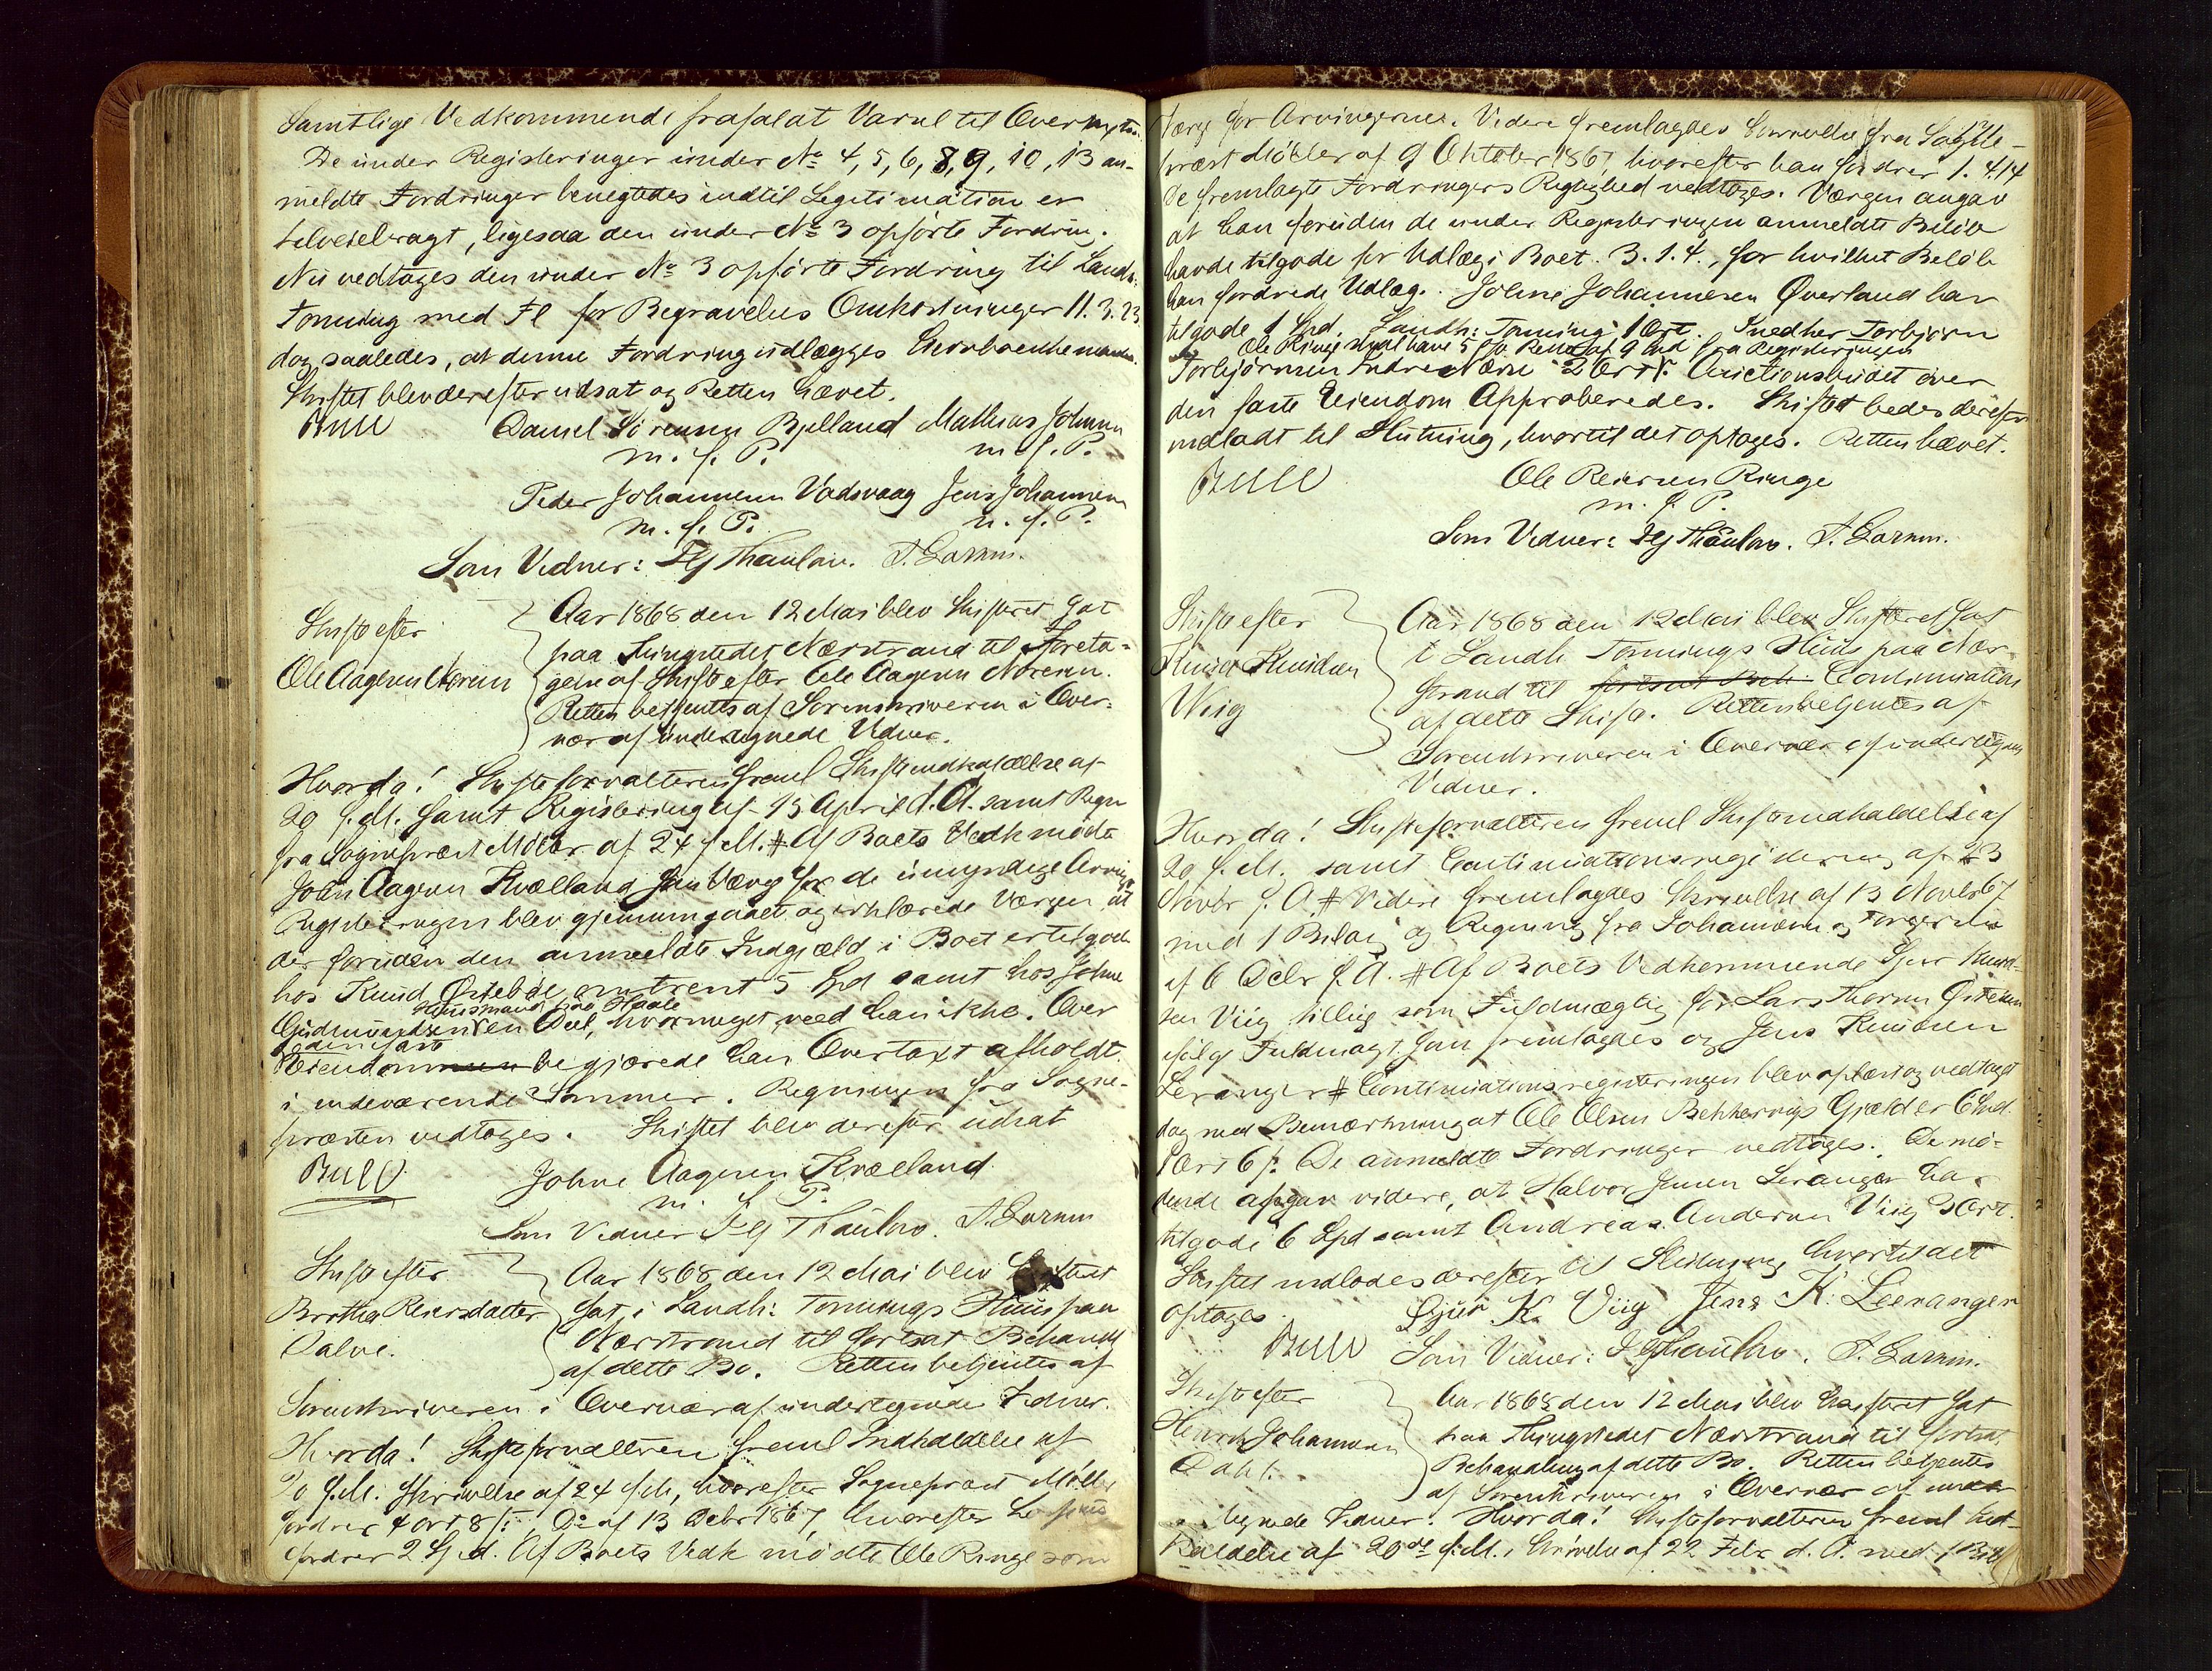 Samtlige Vedkommende frafaldt Varsel til Overtaxten.
De under Registeringer under No 4, 5, 6, 8, 9, 10, 13 an-
meldte Fordringer benegtedes indtil Legitimation er
tilveiebragt, ligesaa den under No 3 opförte Fordring.
Nu vedtoges den under No 3 opförte Fordring til Landh:
Tonning med Fl for Begravelses Omkostninger 11. 3. 23.
dog saaledes, at denne Fordring udlægges
Skiftet blev derefter udsat og Retten hævet.
Bull Daniel Sörensen Bjelland Mathias Johnsen
m. f. P. m. f. P.
Peder Johannesen Vadsvaag Jens Johannesen
m. f. P. m. f. P.
Som Vidner: Fly Thaulow. S. Larsen.
Skifte efter
Ole Aagesen Noreim
Aar 1868 den 12 Mai blev Skifteret sat
paa Thingstedet Nærstrand til Foreta-
gelse af Skifte efter Ole Aagesen Noreim.
Retten betjentes af Sorenskriveren i Over-
vær af undertegnede Vidner.
Hvorda! Skifteforvalteren freml Skifteindkaldelse af
20 f. M. samt Registering af 15 April d. A. samt Regn
fra Sognepræst Möller af 24 f. M. # Af Boets Vedk mödte
John Aagesen Kvælland som Værge for de umyndige Arvinger
Registeringen blev gjennemgaaet og erklærede Værgen at
der foruden den anmeldte Indgjæld i Boet er tilgode
hos Knud Östebö omtrent 5 Spd samt hos Johne
Huusmand paa Haale
Gudmundsen en Deel, hvormeget veed han ikke. Over
den faste
Eiendommen begjærede han Overtaxt afholdt
i indeværende Sommer. Regningen fra Sogne-
præsten vedtoges. Skiftet blev derefter udsat
Bull Johne Aagesen Kvælland
m. f. P.
Som Vidner Fly Thaulow. S. Larsen
Skifte efter
Birtha Reiersdatter
Dalve.
Aar 1868 den 12 Mai blev Skifteret
sat i Landh: Tonnings Huus paa
Nærstrand til fortsat Behandl
af dette Bo. Retten betjentes af
Sorenskriveren i Overvær af undertegnede Vidner.
Hvorda! Skifteforvalteren freml Indkaldelse af
20 f. M. Skrivelse af 24 f M, hvorefter Sognepræst Möller
fordrer 4 Ort 8 s. Do af 13 Debr 1867, hvorefter
fordrer 2 Spd. Af Boets Vedk mödte Ole Ringe som
Værge for Arvingerne. Videre fremlagdes Skrivelse fra Sogne-
præst Möller af 9 Oktober 1867, hvorefter han fordrer 1. 4. 14
De fremlagte Fordringers Rigtighed vedtoges. Værgen angav
at han foruden de under Registeringen anmeldte Belöb
havde tilgode for Udlæg i Boet. 3. 1. 4., for hvilket Belöb
han fordrede Udlæg. Johne Johannesen Överland har
tilgode 1 Spd. Landh: Tonning 1 Ort. Snedker Torbjörn
Ole Ringe skal have 5 s Rente af 9 Spd fra Registeringen
Torbjörnsen Indre 2 Ort. Auctionsbudet over
den faste Eiendom Approberedes. Skiftet bedes derefter
indladt til Slutning, hvortil det optoges. Retten hævet.
Bull Ole Reiersen Ringe
m. f. P.
Som Vidner: Fly Thaulow. S. Larsen.
Skifte efter
Knud Knudsen
Wiig
Aar 1868 den 12 Mai blev Skifteret sat
i Landh Tonnings Huus paa Nær-
strand til fortsat Beh. Continuation
af dette Skifte. Retten betjentes af
Sorenskriveren i Overvær af undertegn
Vidner.
Hvorda! Skifteforvalteren freml Skifteindkaldelse af
20 f. M. samt Continuationsregistering af 23
Novbr f. A. # Videre fremlagdes Skrivelse af 13 Novbr 67
med 1 Bilag og Regning fra Johannesen og
af 6 Debr f. A. # Af Boets Vedkommende Sjur Knud-
sen Viig tillige som Fuldmægtig for Lars Thorsen
ifölge Fuldmagt som fremlagdes og Jens Knudsen
Leranger # Continuationsregisteringen blev oplæst og vedtaget
dog med Bemærkning at Ole Olsen Bekkervigs Gjæld er 6 Spd.
1 Ort 6 s. De anmeldte Fordringer vedtoges. De mö-
dende opgav videre, at Halvor Jensen Leranger har
tilgode 6 Spd samt Andreas Andersen Viig 3 Ort.
Skiftet indlodes derefter til Slutning, hvortil det
optoges. Sjur K. Viig Jens K. Leeranger
Bull Som Vidner: Fly Thaulow. S. Larsen.
Skifte efter
Henrik Johannesen
Dahl.
Aar 1868 den 12 Mai blev Skifteret sat
paa Thingstedet Nærstrand til fortsat
Behandling af dette Bo. Retten betjentes
af Sorenskriveren i Overvær af under-
tegnede Vidner. Hvorda! Skifteforvalteren freml Ind-
kaldelse af 20de f. M., Skrivelse af 22 Febr d. A. med 1 Bilag